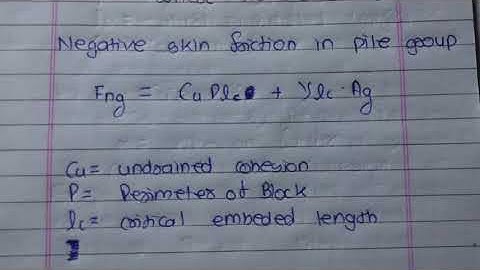 Negative skin friction in pile group
Fng = Cu P lc + γ lc · Ag
Cu = undrained cohesion
P = Perimeter of Block
lc = critical embeded length